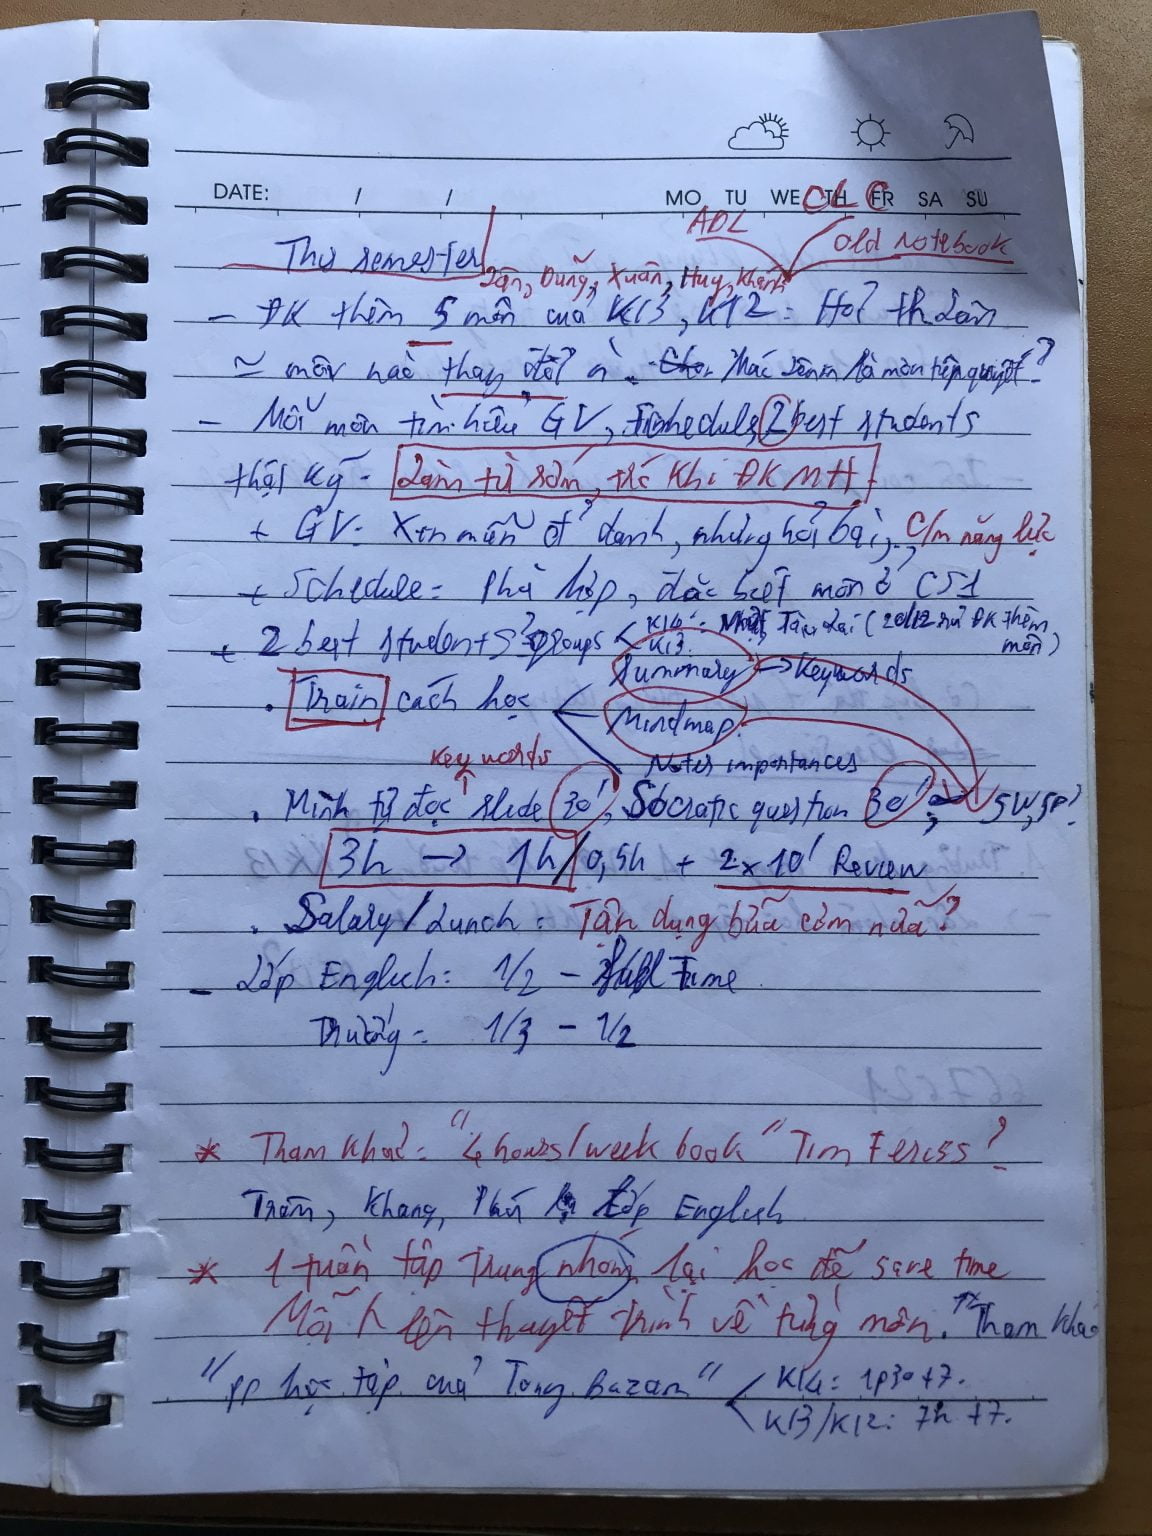 DATE: / / MO TU WE TH FR SA SU
CLC
ADL
old notebook
This semester
Tân, Dũng, Xuân, Huy, Khánh
- ĐK thêm 5 môn của K13, K12: Hỏi
≈ môn nào thay đổi là môn tiên quyết?
- Mỗi môn tìm hiểu GV, schedule, 2 best students
thật kỹ - Làm từ sớm, trc khi ĐKMH
+ GV: Xin miễn điểm danh, nhưng hỏi bài, C/m năng lực
+ Schedule: Phù hợp, đặc biệt môn ở CS1
+ 2 best students groups
K14: (20/12 ĐK thêm môn)
K13:
. Train cách học
Summary → Keywords
Mindmap
Notes importances
Keywords
. Mình tự đọc slide 30', Socratic question 30', 5W, 5P?
3h → 1h/0,5h + 2x10' Review
. Salary/Lunch: Tận dụng bữa cơm nữa?
- Lớp English: 1/2 - full Time
Trường: 1/3 - 1/2
* Tham khảo: "4 hours/week book" Tim Feriss?
Trân, Khang, Phú Lớp English
* 1 tuần tập trung nhóm lại học để save time
Mỗi h lên thuyết trình về từng môn. Tham khảo
"pp học tập của Tony Buzan"
K14: 1p30 t7.
K13/K12: 7h t7.